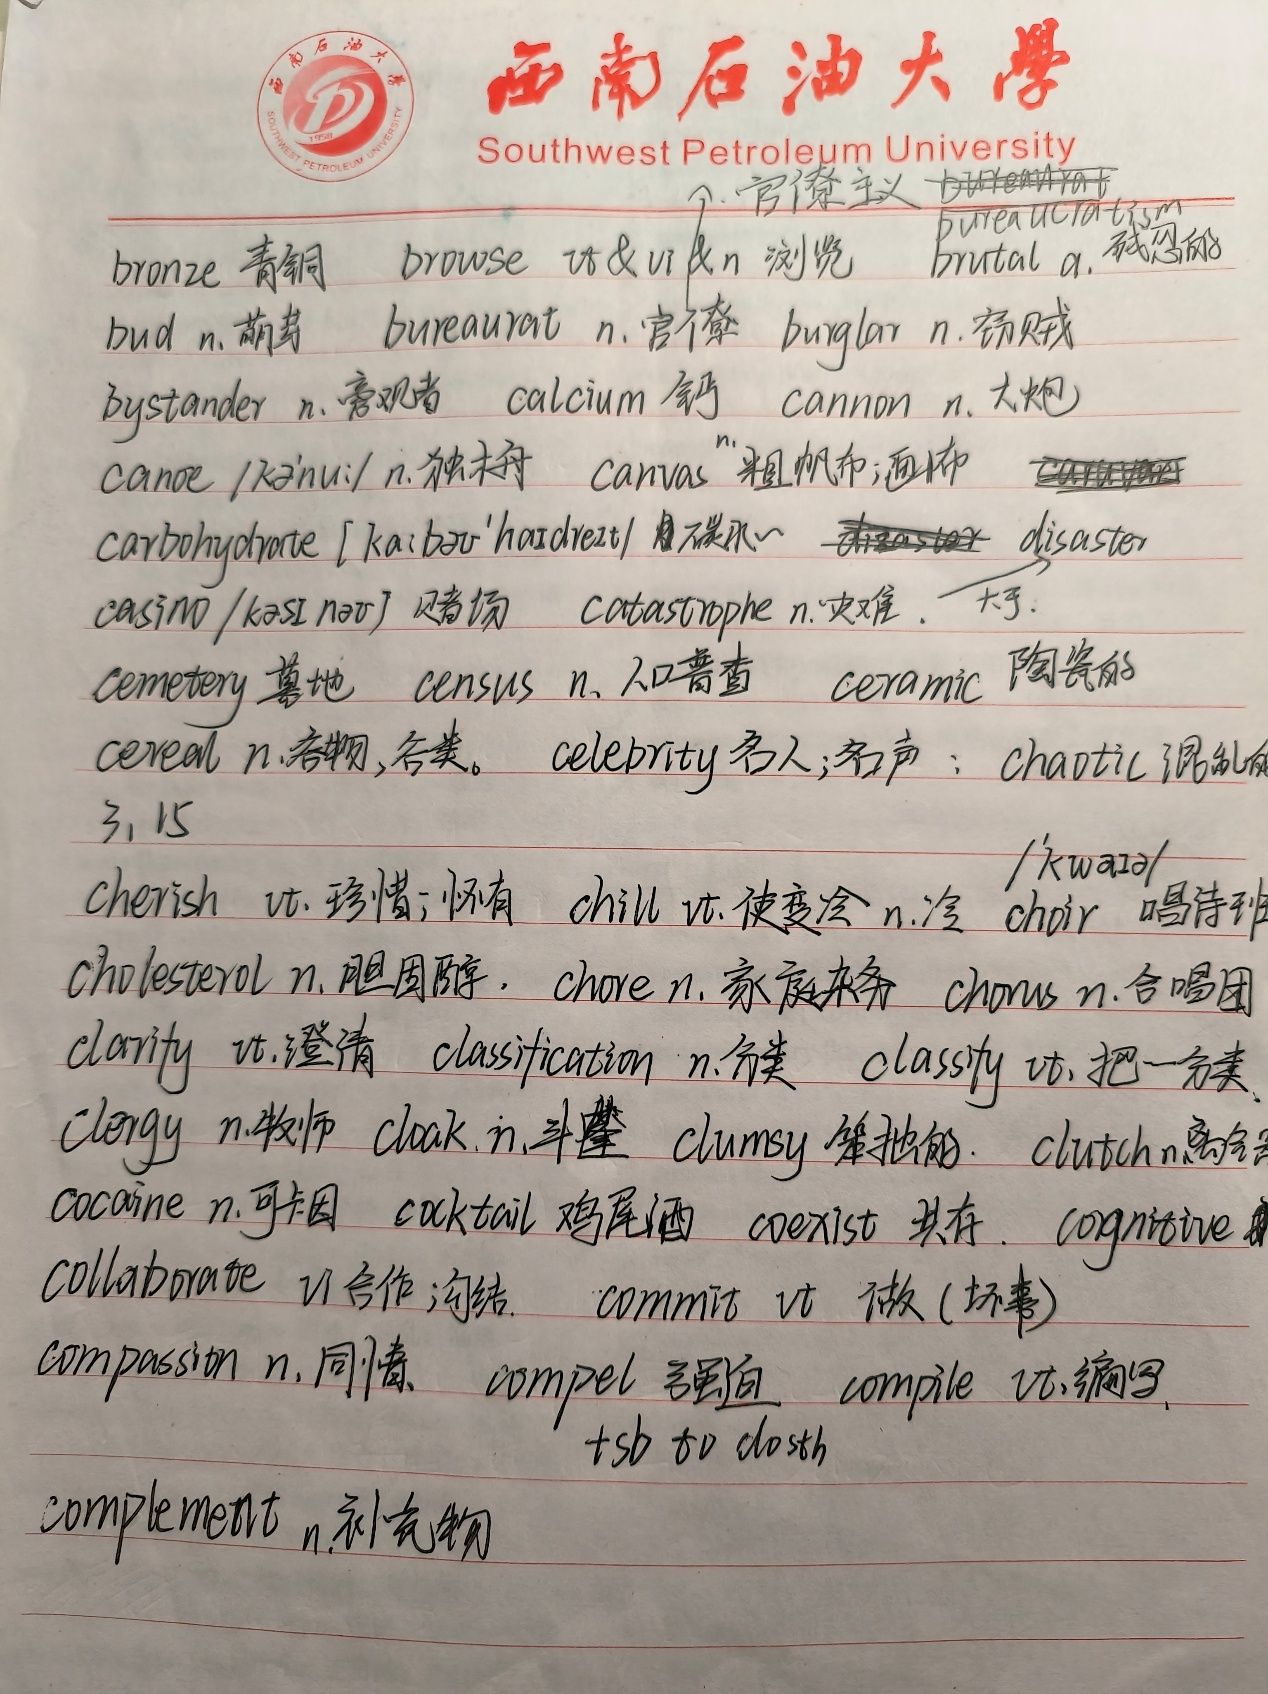 西南石油大學
SOUTHWEST PETROLEUM UNIVERSITY
1958
西南石油大學
Southwest Petroleum University
官僚主义
bureaucratism
bronze 青铜 browse vt & vi & n 浏览 brutal a. 残忍的
bud n. 萌芽 bureaurat n. 官僚 burglar n. 窃贼
bystander n. 旁观者 calcium 钙 cannon n. 大炮
canoe /kə'nu:/ n. 独木舟 canvas n. 粗帆布;画布
carbohydrate [ka:bəʊ'haɪdreɪt/ 碳水~ disaster
casino /kəsɪnəʊ] 赌场 catastrophe n. 灾难. 大于.
cemetery 墓地 census n. 人口普查 ceramic 陶瓷的
cereal n. 谷物、谷类。 celebrity 名人;名声; chaotic 混乱的
3, 15
/'kwaɪə/
cherish vt. 珍惜;怀有 chill vt. 使变冷 n. 冷 choir 唱诗班
cholesterol n. 胆固醇. chore n. 家庭杂务 chorus n. 合唱团
clarify vt. 澄清 classification n. 分类 classify vt. 把一分类.
clergy n. 牧师 cloak n. 斗篷 clumsy 笨拙的. clutch n. 离合
cocaine n. 可卡因 cocktail 鸡尾酒 coexist 共存. cognitive
collaborate vi 合作;沟结. commit vt 做(坏事)
compassion n. 同情、 compel 强迫 compile vt. 编写.
+sb to dosth
complement n. 补充物